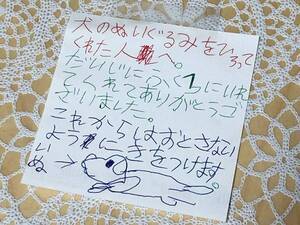 犬のぬいぐるみをひろって
くれた人へ。
だいじにふくろにいれ
てくれてありがとうご
ざいました。
これからはおとさない
ようにきをつけます。
いぬ→